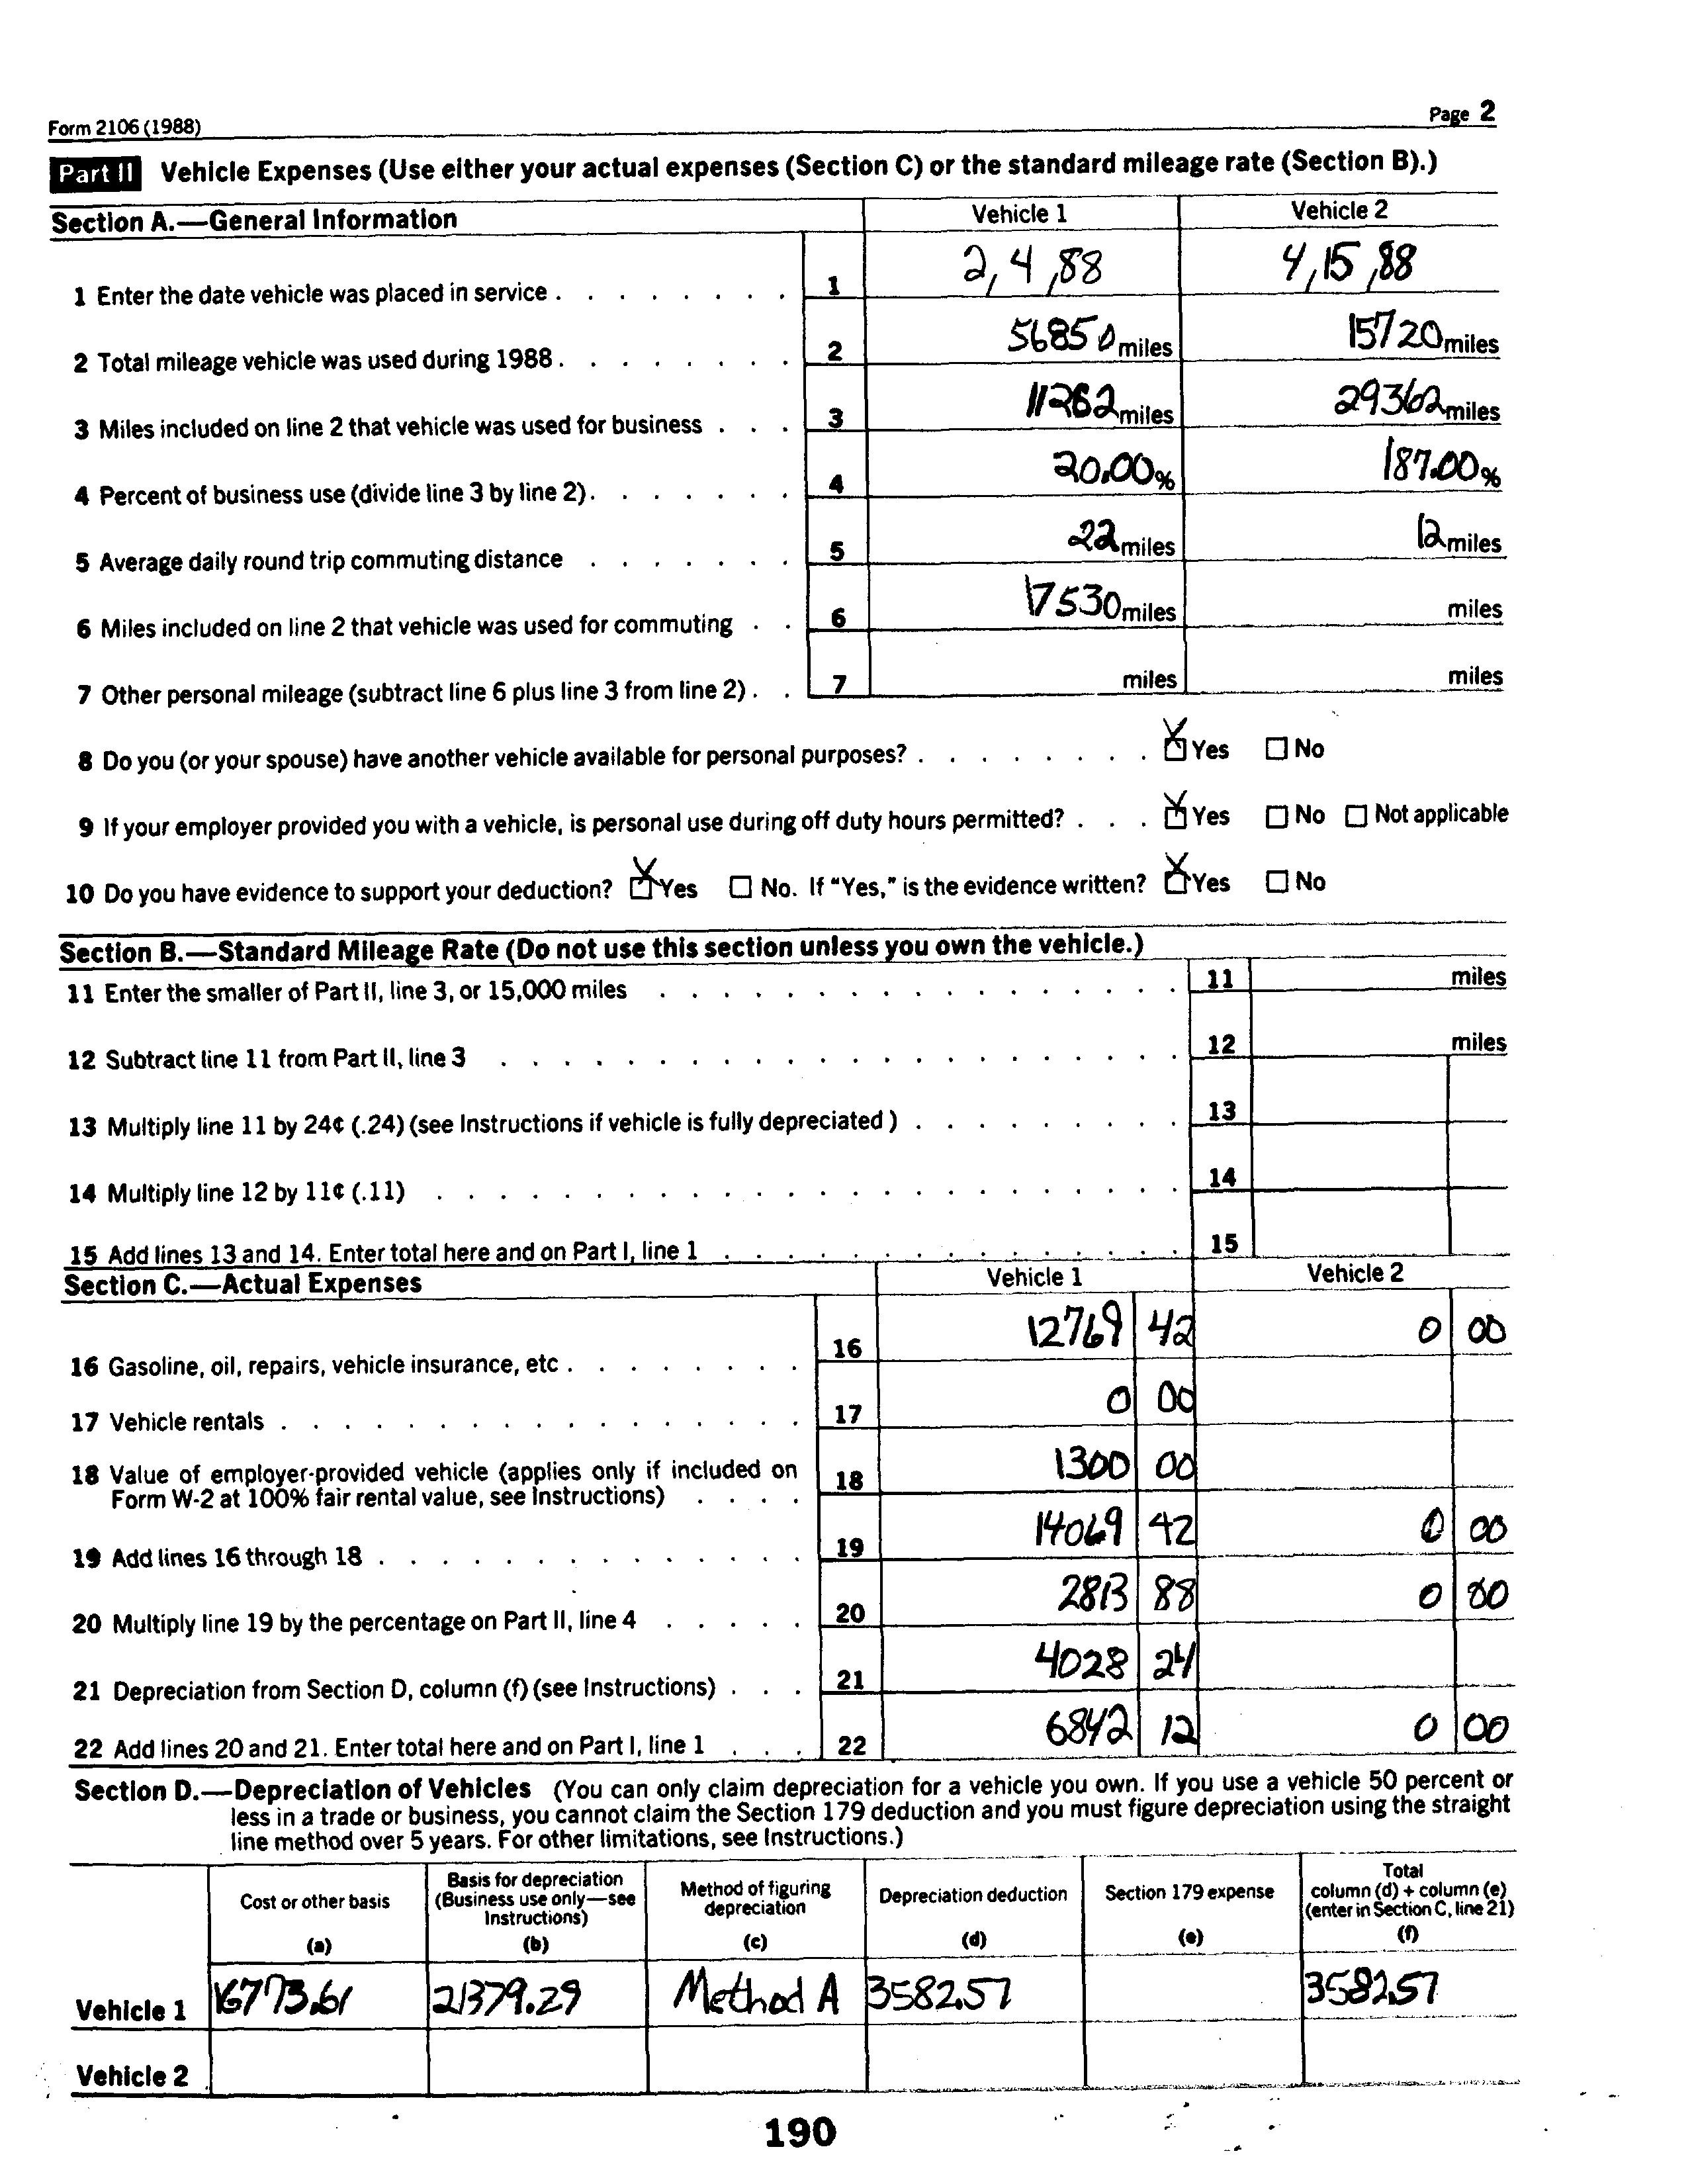 Form 2106 (1988) Page 2
Part II Vehicle Expenses (Use either your actual expenses (Section C) or the standard mileage rate (Section B).)
Section A.—General Information Vehicle 1 Vehicle 2
1 Enter the date vehicle was placed in service . . . . . . . . 1 2, 4, 88 4, 15, 88
2 Total mileage vehicle was used during 1988 . . . . . . . . 2 56850 miles 15720 miles
3 Miles included on line 2 that vehicle was used for business . . . 3 11262 miles 29362 miles
4 Percent of business use (divide line 3 by line 2) . . . . . . . 4 20.00 % 187.00 %
5 Average daily round trip commuting distance . . . . . . . 5 22 miles 12 miles
6 Miles included on line 2 that vehicle was used for commuting . . 6 17530 miles miles
7 Other personal mileage (subtract line 6 plus line 3 from line 2) . . 7 miles miles
8 Do you (or your spouse) have another vehicle available for personal purposes? . . . . . . . . X Yes No
9 If your employer provided you with a vehicle, is personal use during off duty hours permitted? . . . X Yes No Not applicable
10 Do you have evidence to support your deduction? X Yes No. If "Yes," is the evidence written? X Yes No
Section B.—Standard Mileage Rate (Do not use this section unless you own the vehicle.)
11 Enter the smaller of Part II, line 3, or 15,000 miles . . . . . . . . . . . . . . . . . 11 miles
12 Subtract line 11 from Part II, line 3 . . . . . . . . . . . . . . . . . . . . . . 12 miles
13 Multiply line 11 by 24¢ (.24) (see Instructions if vehicle is fully depreciated) . . . . . . . . . 13
14 Multiply line 12 by 11¢ (.11) . . . . . . . . . . . . . . . . . . . . . . . . 14
15 Add lines 13 and 14. Enter total here and on Part I, line 1 . . . . . . . . . . . . . . . 15
Section C.—Actual Expenses Vehicle 1 Vehicle 2
16 Gasoline, oil, repairs, vehicle insurance, etc . . . . . . . . 16 12769 42 0 00
17 Vehicle rentals . . . . . . . . . . . . . . . . . 17 0 00
18 Value of employer-provided vehicle (applies only if included on
Form W-2 at 100% fair rental value, see Instructions) . . . . 18 1300 00
19 Add lines 16 through 18 . . . . . . . . . . . . . . 19 14069 42 0 00
20 Multiply line 19 by the percentage on Part II, line 4 . . . . . 20 2813 88 0 00
21 Depreciation from Section D, column (f) (see Instructions) . . . 21 4028 24
22 Add lines 20 and 21. Enter total here and on Part I, line 1 . . . 22 6842 12 0 00
Section D.—Depreciation of Vehicles (You can only claim depreciation for a vehicle you own. If you use a vehicle 50 percent or
less in a trade or business, you cannot claim the Section 179 deduction and you must figure depreciation using the straight
line method over 5 years. For other limitations, see Instructions.)
Cost or other basis (a)
Basis for depreciation (Business use only—see Instructions) (b)
Method of figuring depreciation (c)
Depreciation deduction (d)
Section 179 expense (e)
Total column (d) + column (e) (enter in Section C, line 21) (f)
Vehicle 1 16773.61 21379.29 Method A 3582.57 3582.57
Vehicle 2
190